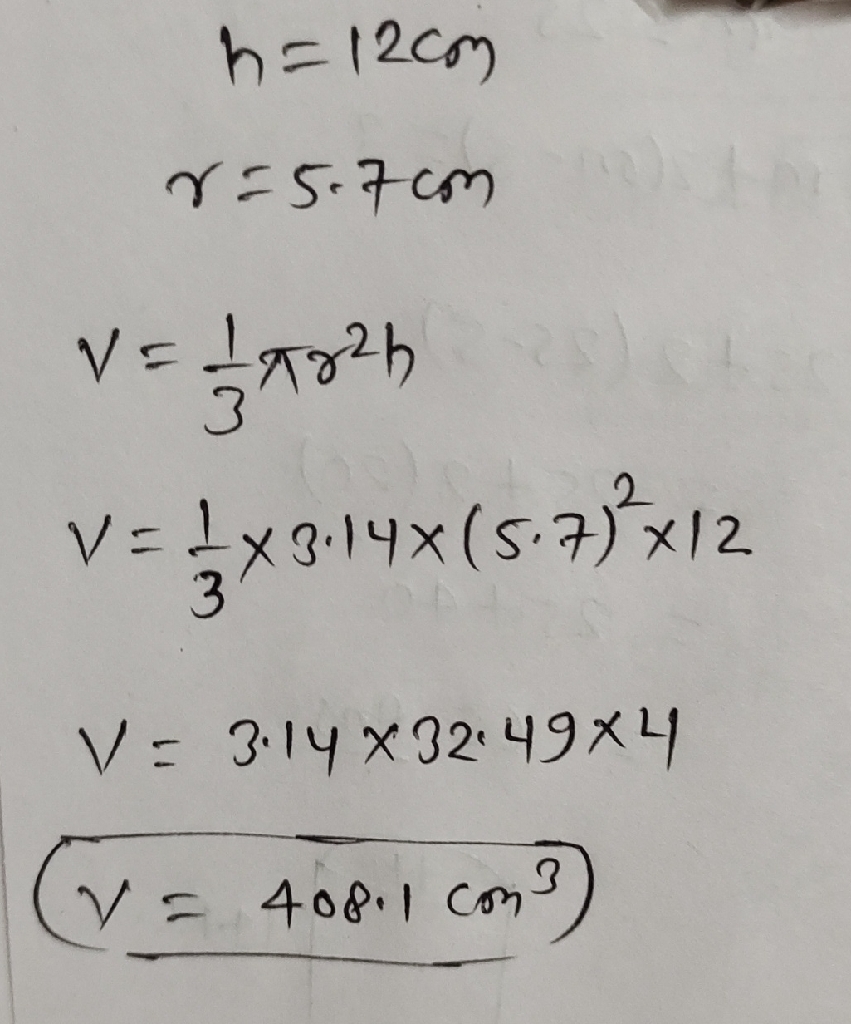 h=12cm
r=5.7cm
V=1/3πr²h
V=1/3×3.14×(5.7)²×12
V=3.14×32.49×4
V=408.1 cm³